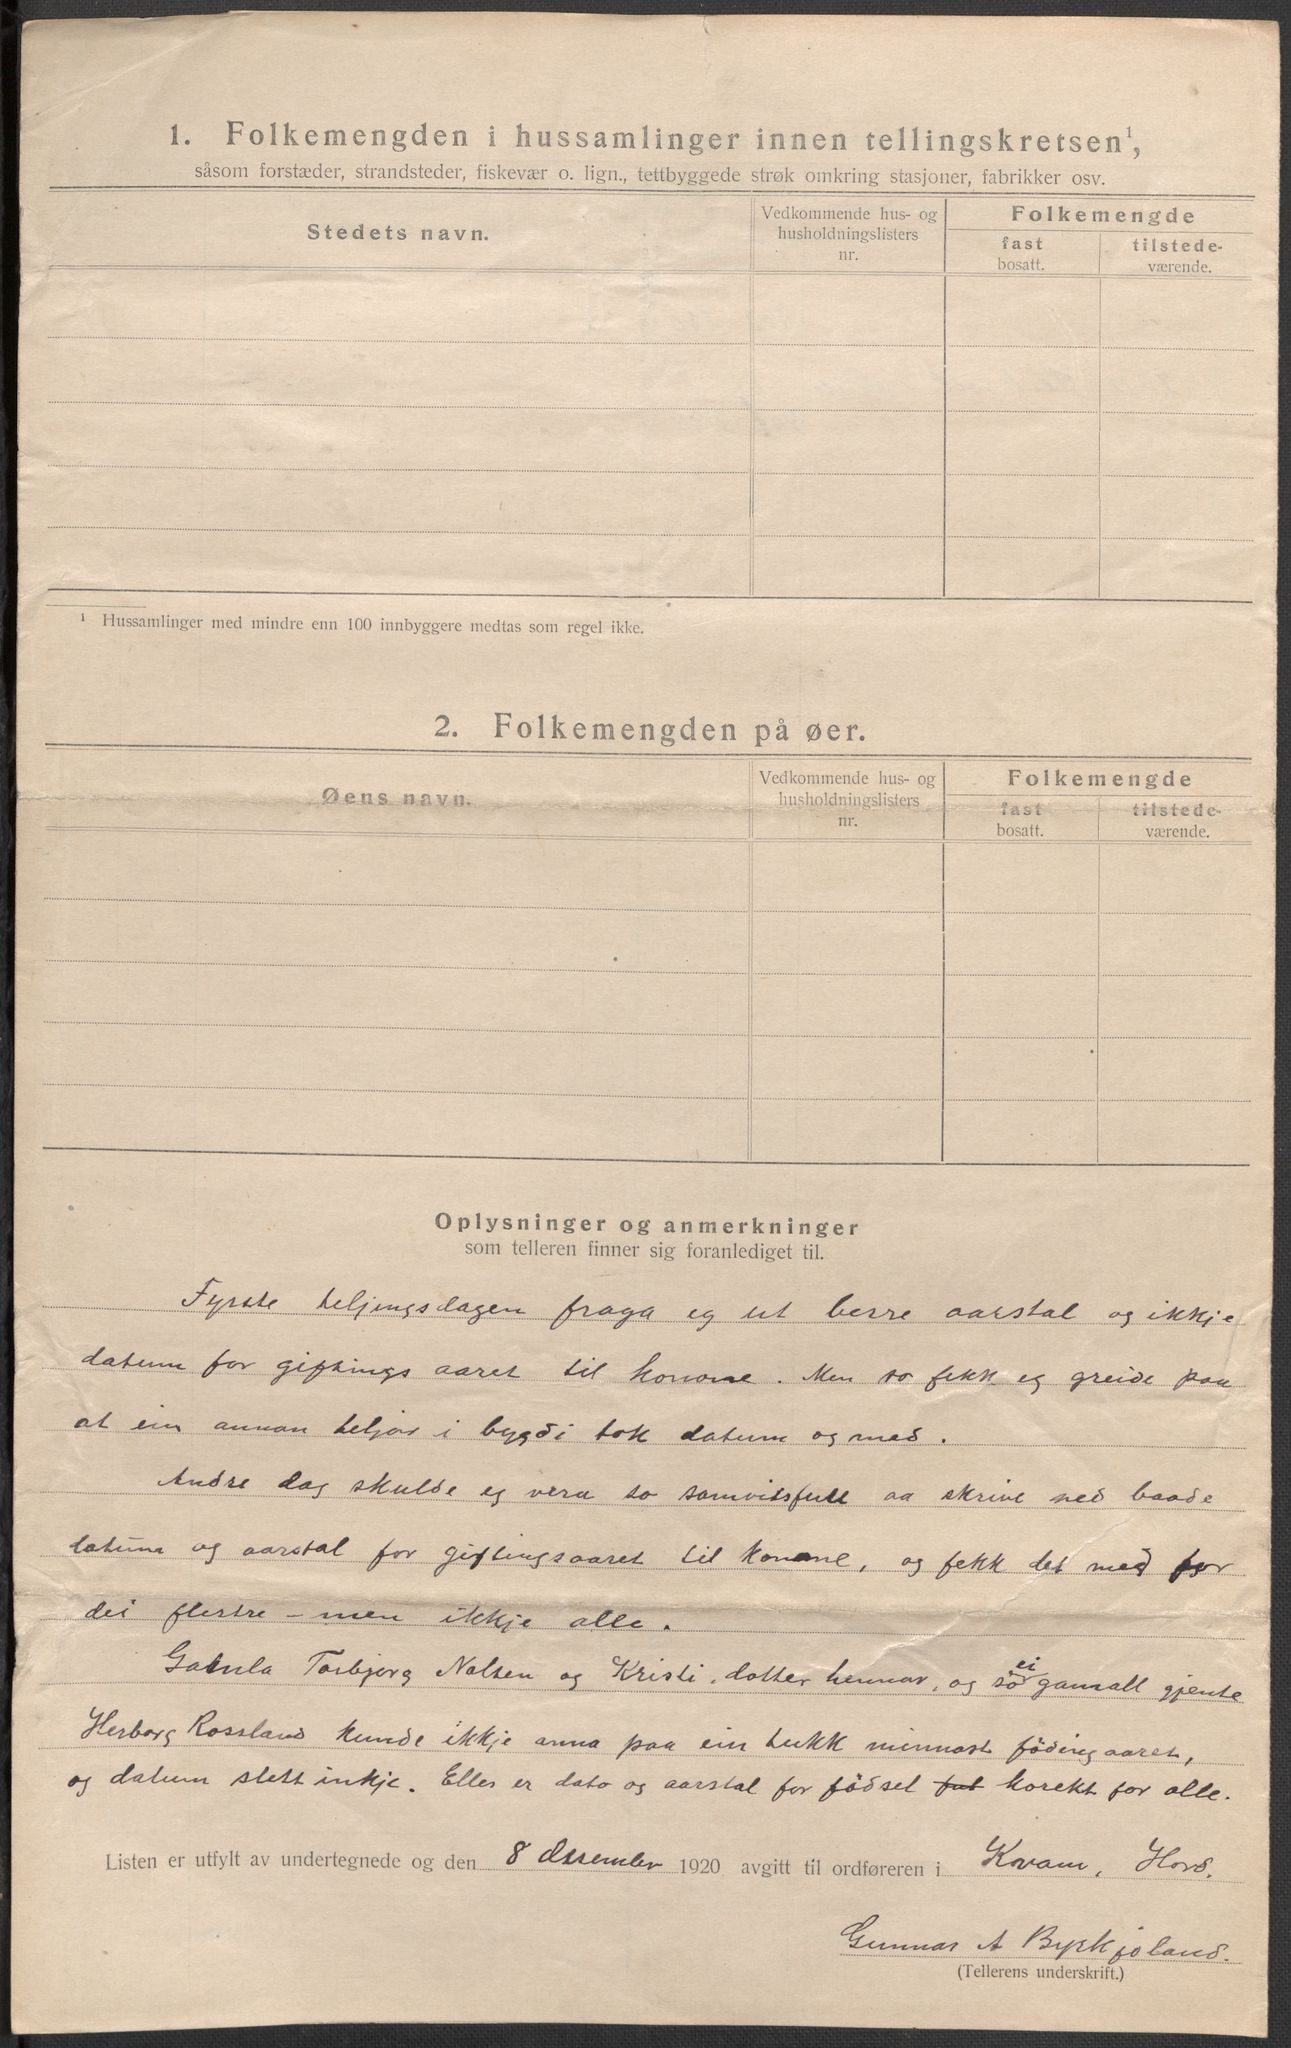 1. Folkemengden i hussamlinger innen tellingskretsen¹,
såsom forstæder, strandsteder, fiskevær o. lign., tettbyggede strøk omkring stasjoner, fabrikker osv.
Stedets navn.
Vedkommende hus- og husholdningslisters nr.
Folkemengde
fast bosatt.
tilstede- værende.
¹ Hussamlinger med mindre enn 100 innbyggere medtas som regel ikke.
2. Folkemengden på øer.
Øens navn.
Vedkommende hus- og husholdningslisters nr.
Folkemengde
fast bosatt.
tilstede- værende.
Oplysninger og anmerkninger
som telleren finner sig foranlediget til.
Fyrste teljingsdagen fraga eg ut berre aarstal og ikkje
datum for giftings aaret til konone. Men so fekk eg greide paa
at ein annan teljar i bygdi tok datum og med.
Andre dag skulde eg vera so samvitsfull aa skrive ned baade
datum og aarstal for giftingsaaret til konone, og fekk det med for
dei fleste – men ikkje alle.
Torbjørg Nolsen og Kristi, dotter hennar, og so ei gamall gjente
Herborg Rossland kunde ikkje anna paa ein tukk minnast födingaaret,
og datum slett inkje. Elles er dato og aarstal for födsel korekt for alle.
Listen er utfylt av undertegnede og den 8 desember 1920 avgitt til ordføreren i Kvam, Hord.
Gunnar A Byrkjeland.
(Tellerens underskrift.)